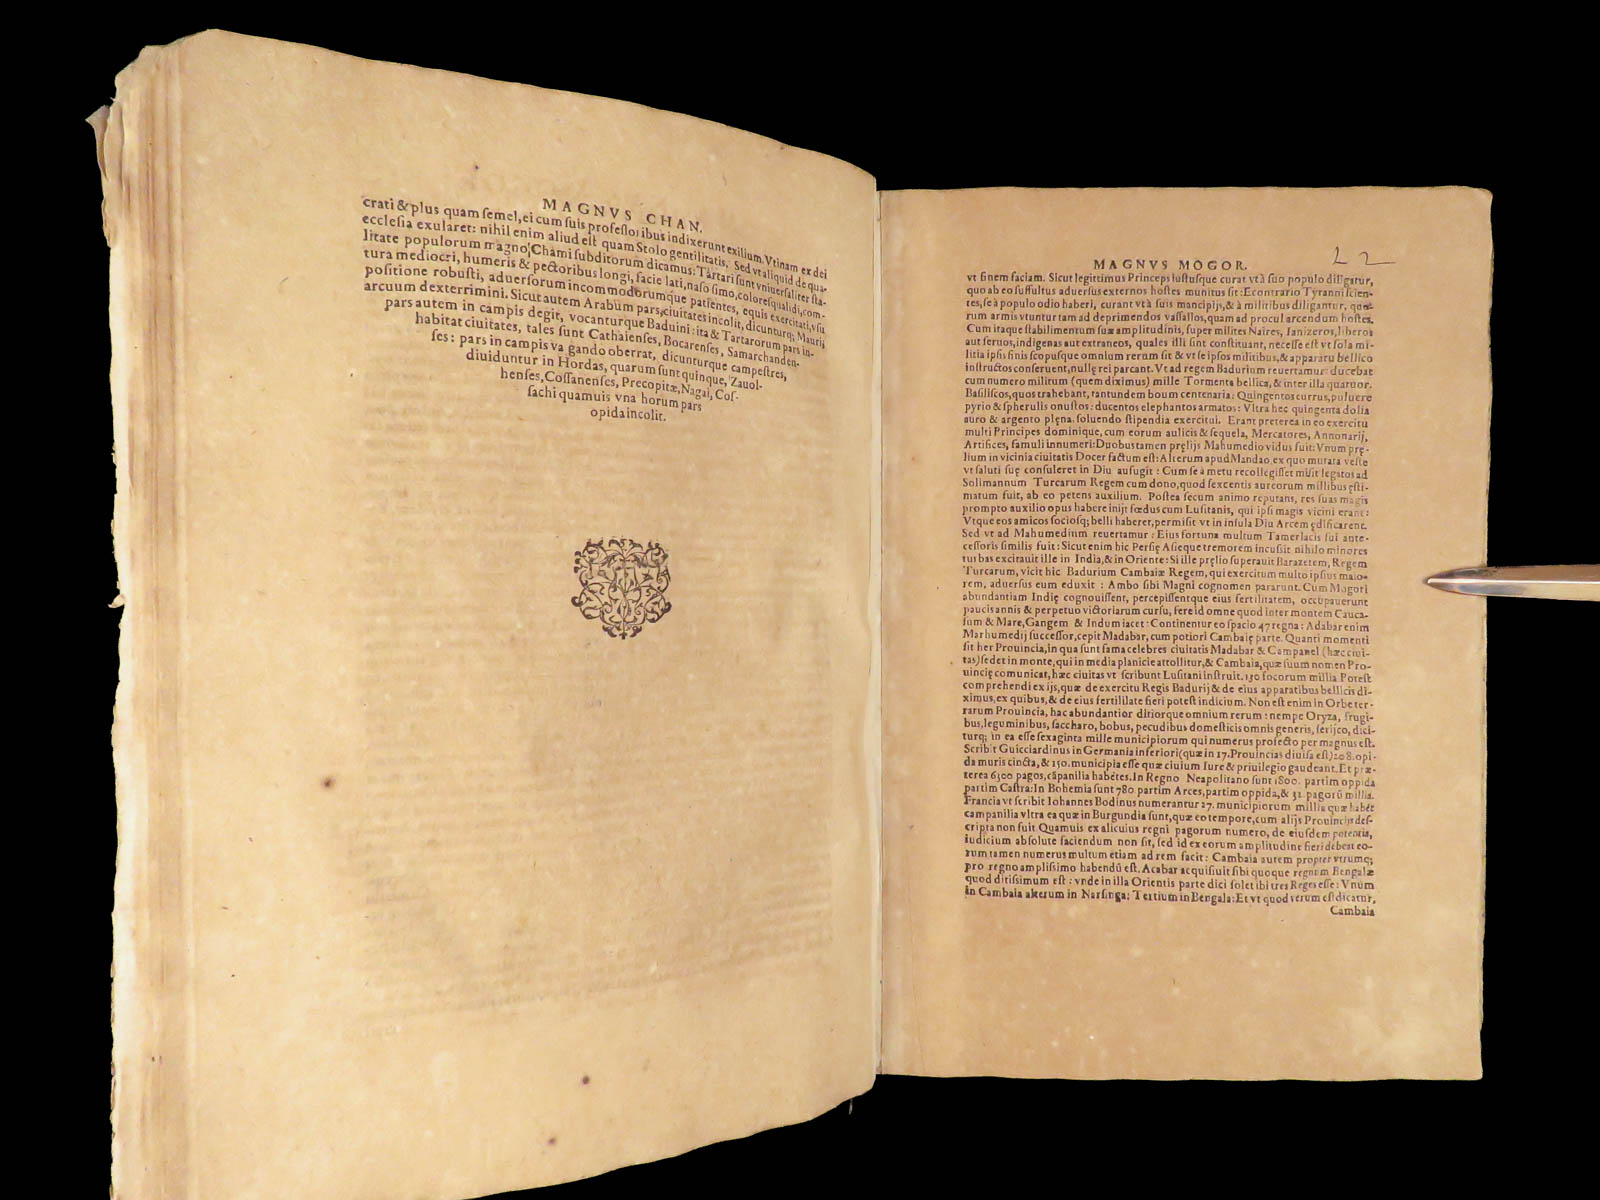 MAGNVS CHAN.
crati & plus quam ſemel, ei cum ſuis profeſſoribus indixerunt exilium. Vtinam ex dei
eccleſia exularet: nihil enim aliud eſt quam Stolo gentilitatis, Sed vt aliquid de qua-
litate populorum magno Chami ſubditorum dicamus: Tartari ſunt vniuerſaliter ſta-
tura mediocri, humeris & pectoribus longi, facie lati, naſo ſimo, colore ſqualidi, com-
poſitione robuſti, aduerſorum incommodorumque patientes, equis exercitati, vſu
arcuum dexterrimi. Sicut autem Arabum pars, ciuitates incolit, dicunturq; Mauri,
pars autem in campis degit, vocanturque Baduini: ita & Tartarorum pars in-
habitat ciuitates, tales ſunt Cathaienſes, Bocarenſes, Samarchanden-
ſes: pars in campis va gando oberrat, dicunturque campeſtres,
diuiduntur in Hordas, quarum ſunt quinque, Zauol-
henſes, Coſſanenſes, Precopitæ, Nagai, Coſ-
ſachi quamuis vna horum pars
opida incolit.
22
MAGNVS MOGOR.
vt finem faciam. Sicut legittimus Princeps iuſtuſque curat vt à ſuo populo diligatur,
quo ab eo ſuffultus aduerſus externos hoſtes munitus ſit: Econtrario Tyranni ſcien-
tes, ſe à populo odio haberi, curant vt à ſuis mancipijs, & à militibus diligantur, quo-
rum armis vtuntur tam ad deprimendos vaſſallos, quam ad procul arcendum hoſtes.
Cum itaque ſtabilimentum ſuæ amplitudinis, ſuper milites Naires, Ianizeros, liberos
aut ſeruos, indigenas aut extraneos, quales illi ſint conſtituant, neceſſe eſt vt ſola mi-
litia ipſis finis ſcopuſque omnium rerum ſit & vt ſe ipſos militibus, & apparatu bellico
inſtructos conſeruent, nullę rei parcant. Vt ad regem Badurium reuertamur: ducebat
cum numero militum (quem diximus) mille Tormenta bellica, & inter illa quatuor.
Baſiliſcos, quos trahebant, tantundem boum centenaria: Quingentos currus, puluere
pyrio & ſpherulis onuſtos: ducentos elephantos armatos: Vltra hec quingenta dolia
auro & argento plęna, ſoluendo ſtipendia exercitui. Erant preterea in eo exercitu
multi Principes dominique, cum eorum aulicis & ſequela, Mercatores, Annonarij,
Artifices, famuli innumeri: Duobus tamen pręlijs Mahumedio vidus fuit: Vnum prę-
lium in vicinia ciuitatis Docer factum eſt: Alterum apud Mandao, ex quo mutata veſte
vt ſaluti ſuę conſuleret in Diu aufugit: Cum ſe à metu recollegiſſet miſit legatos ad
Solimannum Turcarum Regem cum dono, quod ſexcentis aureorum millibus ęſti-
matum fuit, ab eo petens auxilium. Poſtea ſecum animo reputans, res ſuas magis
prompto auxilio opus habere inijt fœdus cum Luſitanis, qui ipſi magis vicini erant:
Vtque eos amicos ſocioſq; belli haberet, permiſit vt in inſula Diu Arcem ędificarent.
Sed vt ad Mahumedinm reuertamur: Eius fortuna multum Tamerlacis ſui ante-
ceſſoris ſimilis fuit: Sicut enim hic Perſię Aſieque tremorem incuſſit nihilo minores
turbas excitauit ille in India, & in Oriente: Si ille pręlio ſuperauit Barazetem, Regem
Turcarum, vicit hic Badurium Cambaiæ Regem, qui exercitum multo ipſius maio-
rem, aduerſus eum eduxit: Ambo ſibi Magni cognomen pararunt. Cum Mogori
abundantiam Indię cognouiſſent, percepiſſentque eius fertilitatem, occupauerunt
paucis annis & perpetuo victoriarum curſu, fere id omne quod inter montem Cauca-
ſum & Mare, Gangem & Indum iacet: Continentur eo ſpacio 47 regna: Adabar enim
Marhumedij ſucceſſor, cepit Madabar, cum potiori Cambaię parte. Quanti momenti
ſit her Prouincia, in qua ſunt fama celebres ciuitatis Madabar & Campanel (hæc ciui-
tas) ſedet in monte, qui in media planicie attollitur, & Cambaia, quæ ſuum nomen Pro-
uincię comunicat, hæc ciuitas vt ſcribunt Luſitani inſtruit. 150 focorum millia Poteſt
comprehendi ex ijs, quæ de exercitu Regis Badurij & de eius apparatibus bellicis di-
ximus, ex quibus, & de eius fertilitate fieri poteſt indicium. Non eſt enim in Orbe ter-
rarum Prouincia, hac abundantior ditiorque omnium rerum: nempe Oryza, frugi-
bus, leguminibus, ſaccharo, bobus, pecudibus domeſticis omnis generis, ſerijco, dici-
turq; in ea eſſe ſexaginta mille municipiorum qui numerus profecto per magnus eſt.
Scribit Guicciardinus in Germania inferiori (quæ in 17. Prouincias diuiſa eſt) 208. opi-
da muris cincta, & 150. municipia eſſe quæ ciuium Iure & priuilegio gaudeant. Et præ-
terea 6300 pagos, cāpanilia habētes. In Regno Neapolitano ſunt 1800. partim oppida
partim Caſtra: In Bohemia ſunt 780 partim Arces, partim oppida, & 32. pagorū millia.
Francia vt ſcribit Iohannes Bodinus numerantur 27. municipiorum millia quæ habēt
campanilia vltra ea quæ in Burgundia ſunt, quæ eo tempore, cum alijs Prouincijs deſ-
cripta non fuit Quamuis ex alicuius regni pagorum numero, de eiuſdem potentia,
iudicium abſolute faciendum non ſit, ſed id ex eorum amplitudine fieri debeat eo-
rum tamen numerus multum etiam ad rem facit: Cambaia autem propter vtrumq;
pro regno ampliſſimo habendū eſt. Acabar acquiſiuit ſibi quoque regnum Bengalæ
quod ditiſſimum eſt: vnde in illa Orientis parte dici ſolet ibi tres Reges eſſe: Vnum
in Cambaia alterum in Narſinga: Tertium in Bengala: Et vt quod verum eſt dicatur,
Cambaia